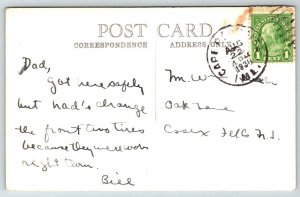 POST CARD
CORRESPONDENCE
ADDRESS ONLY
Dad,
Got here safely
but had to change
the front two tires
because they were worn
right down.
Bill
M. W.
Oak Lane
Essex Fells N.J.
CAPE
AUG
22
1936
MA.
1 CENT 1